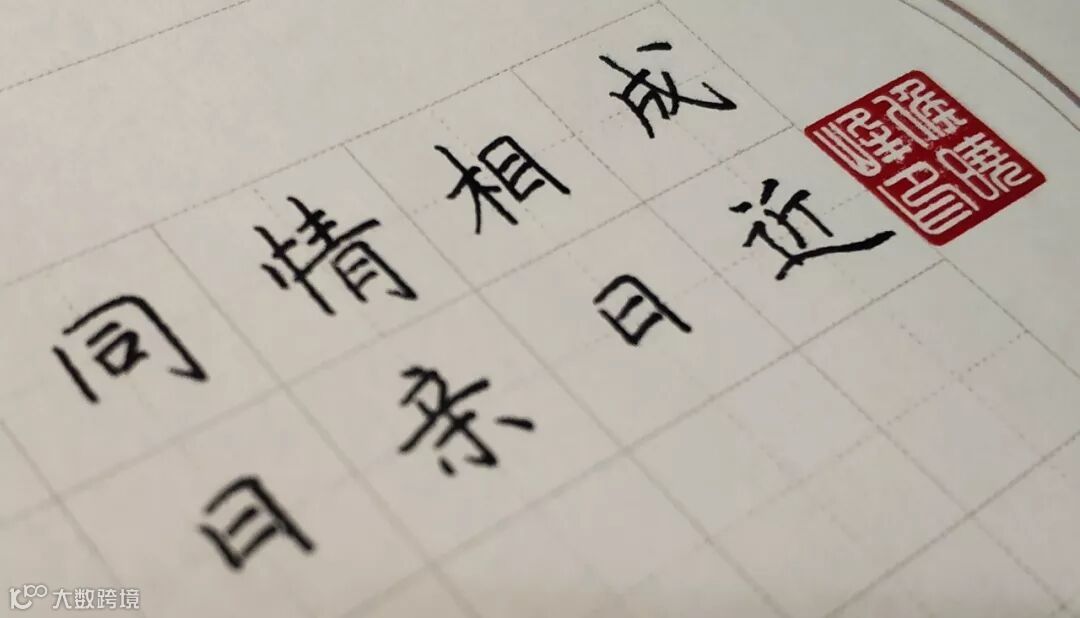 同情相成
日亲日近
大数跨境